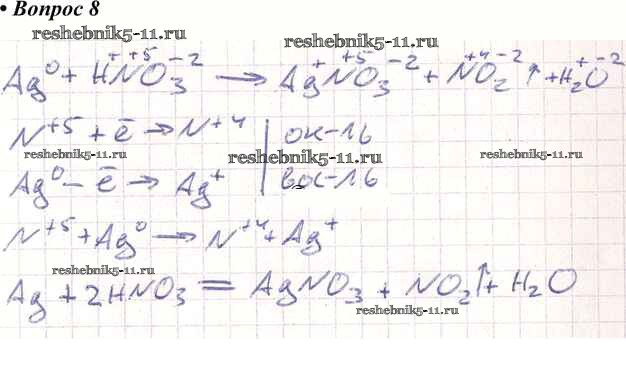 • Вопрос 8
reshebnik5-11.ru reshebnik5-11.ru
Ag⁰ + H⁺N⁺⁵O₃⁻² → Ag⁺N⁺⁵O₃⁻² + N⁺⁴O₂⁻²↑ + H₂⁺O⁻²
N⁺⁵ + ē → N⁺⁴ | ок-1б
reshebnik5-11.ru reshebnik5-11.ru reshebnik5-11.ru
Ag⁰ - ē → Ag⁺ | вос-1б
N⁺⁵ + Ag⁰ → N⁺⁴ + Ag⁺
reshebnik5-11.ru
Ag + 2HNO₃ = AgNO₃ + NO₂↑ + H₂O
reshebnik5-11.ru